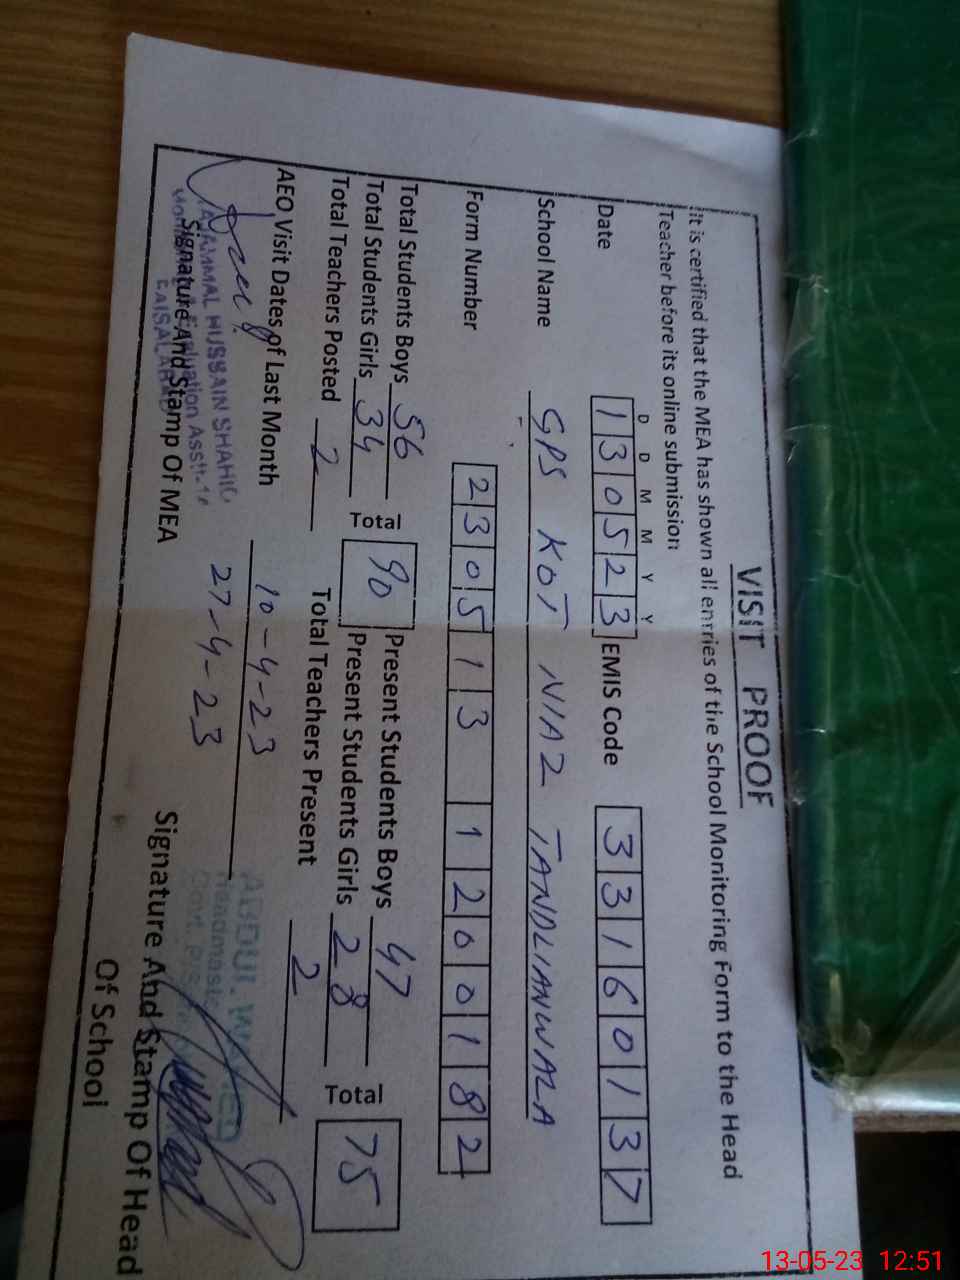 VISIT PROOF
It is certified that the MEA has shown all entries of the School Monitoring Form to the Head
Teacher before its online submission
D D M M Y Y
Date 1 3 0 5 2 3 EMIS Code 3 3 1 6 0 1 3 7
School Name GPS KOT NIAZ TANDLIANWALA
Form Number 2 3 0 5 1 3 1 2 0 0 1 8 2
Total Students Boys 56 Present Students Boys 47
Total Students Girls 34 Total 90 Present Students Girls 28 Total 75
Total Teachers Posted 2 Total Teachers Present 2
AEO Visit Dates of Last Month 10-4-23
27-4-23
HUSSAIN SHAHID
FAISALABAD
ABDUL
Signature And Stamp Of MEA Signature And Stamp Of Head
Of School
13-05-23 12:51